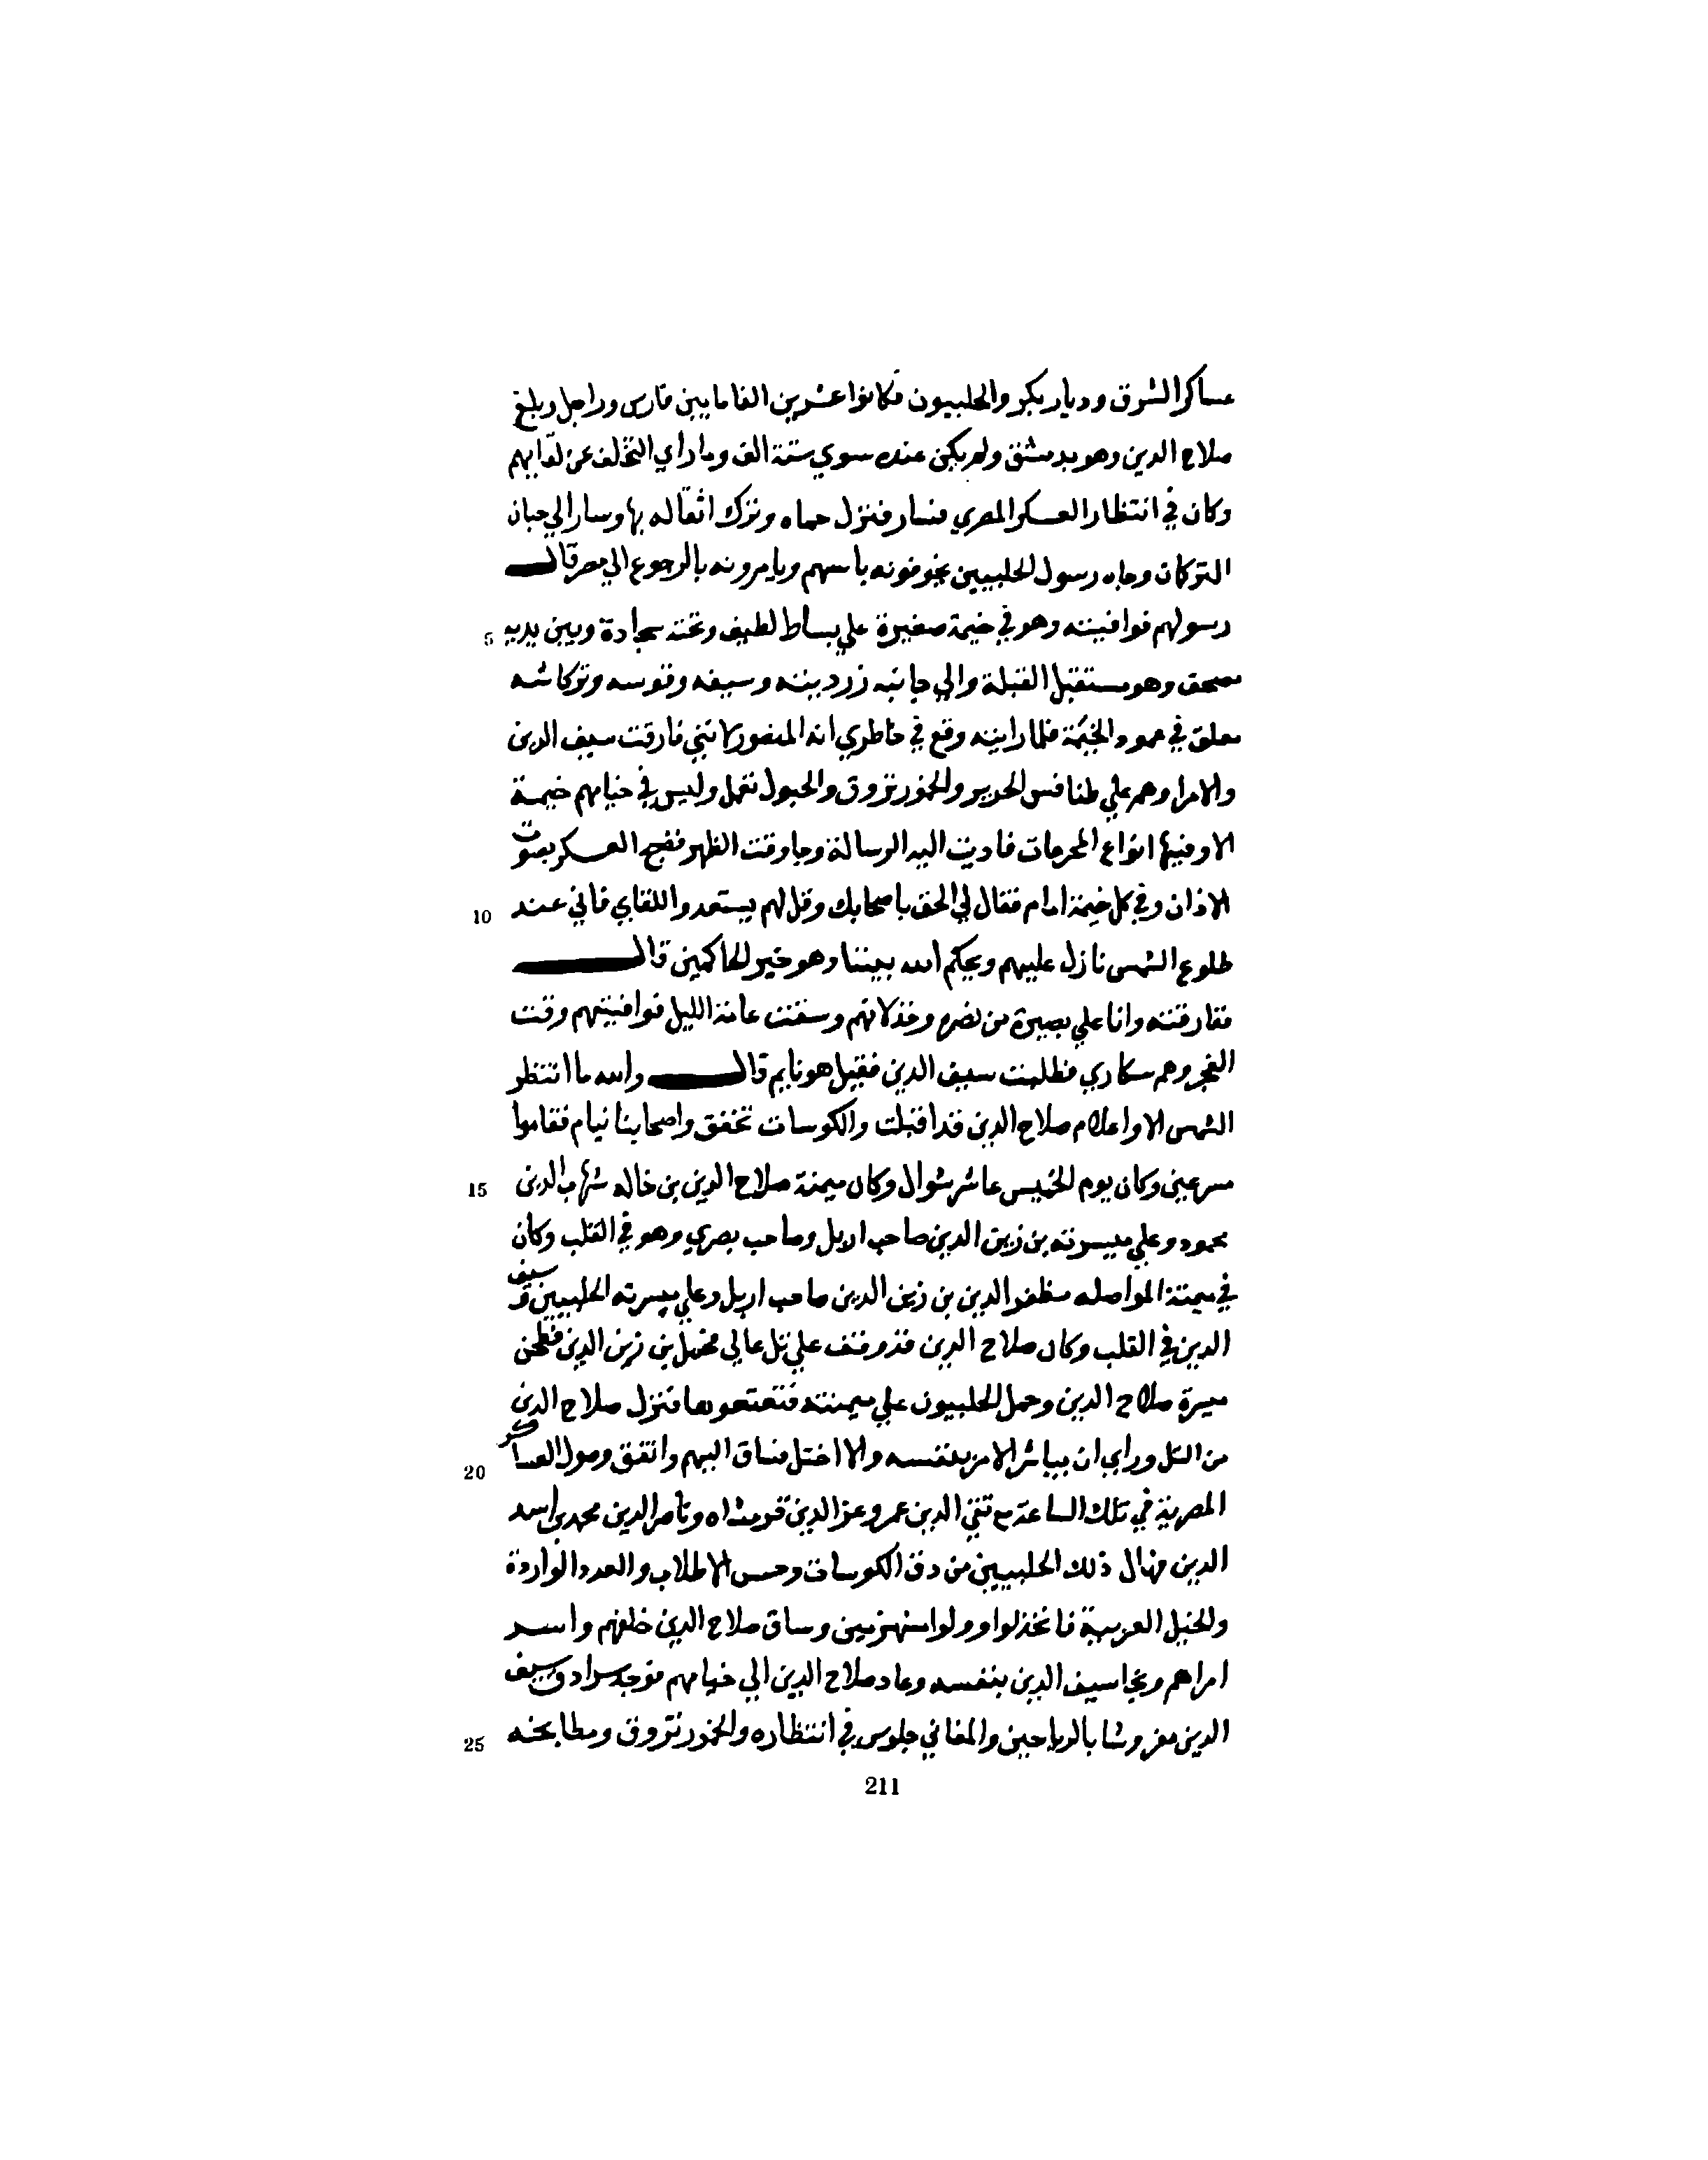 عساكر الشرق وديار بكر والحلبيون فكانوا عشرين الفا ما بين فارس وراجل وبلغ
صلاح الدين وهو بدمشق ولم يكن عنده سوي ستة الف وما راي التخلف عن لقايهم
وكان في انتظار العسكر المصري فسار فنزل حماه وترك اثقاله بها وسار الي جباب
التركان وجاه رسول الحلبيين يخوفونه باسهم ويامرونه بالرجوع الي مصر قال
رسولهم فوافيته وهو في خيمة صغيرة علي بساط لطيف وتحته سجادة وبين يديه
5
مصحف وهو مستقبل القبلة والي جانبه زرديته وسيفه وقوسه وتركاشه
معلق في عمود الخيمة فلما رايته وقع في خاطري انه المنصور لانني فارقت سيف الدين
والامرا وهم علي طنافس الحرير والخمور تروق والخيول تعمل وليس في خيامهم خيمة
الا وفيها انواع المحرمات فاديت اليه الرسالة وجا وقت الظهر فضج العسكر بصوت
الاذان وفي كل خيمة امام فقال لي الحق باصحابك وقل لهم يستعدوا للقاي فاني عند
10
طلوع الشمس نازل عليهم ويحكم الله بيننا وهو خير الحاكمين قال
ففارقته وانا علي بصيرة من نصره وخذلانهم وسقت عامة الليل فوافيتهم وقت
الفجر وهم سكاري فطلبت سيف الدين فقيل هو نايم قال والله ما انتظر
الشمس الا واعلام صلاح الدين قد اقبلت والكوسات تخفق واصحابنا نيام فقاموا
مسرعين وكان يوم الخميس عاشر شوال وكان ميمنة صلاح الدين بن خاله شهاب الدين
15
محمود وعلي ميسرته بن زين الدين صاحب اربل وصاحب بصري وهو في القلب وكان
في ميمنة المواصله مظفر الدين بن زين الدين صاحب اربل وعلي ميسرته الحلبيين و سيف
الدين في القلب وكان صلاح الدين قد وقف علي تل عالي فحمل بن زين الدين فطحن
ميسرة صلاح الدين وحمل الحلبيون علي ميمنته فتعتعوها فنزل صلاح الدين
من التل وراي ان يباشر الامر بنفسه والا اختل فساق اليهم واتفق وصول العساكر
20
المصرية في تلك الساعة مع تقي الدين عمر وعز الدين فرخشاه وناصر الدين محمد بن اسد
الدين فهال ذلك الحلبيين من دق الكوسات وحس الاطلاب والعدد الواردة
والخيل العربية فانخذلوا وولوا منهزمين وساق صلاح الدين خلفهم واسر
امراهم ونجا سيف الدين بنفسه وعاد صلاح الدين الي خيامهم فوجد سرادق سيف
الدين مفروشا بالرياحين والمغاني جلوس في انتظاره والخمور تروق ومطابخه
25
211